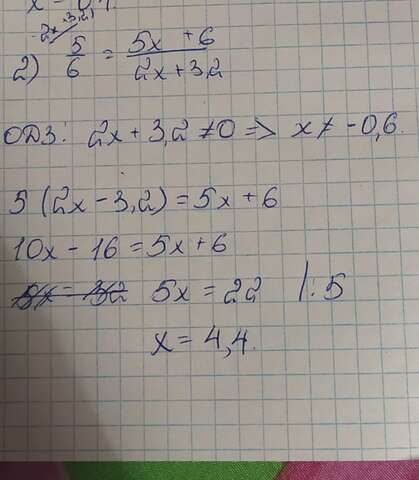 2x+3,2)
2) 5/6 = (5x + 6)/(2x + 3,2)
ОДЗ: 2x + 3,2 ≠ 0 => x ≠ -0,6.
5 (2x - 3,2) = 5x + 6
10x - 16 = 5x + 6
5x = 22 /: 5
x = 4,4.